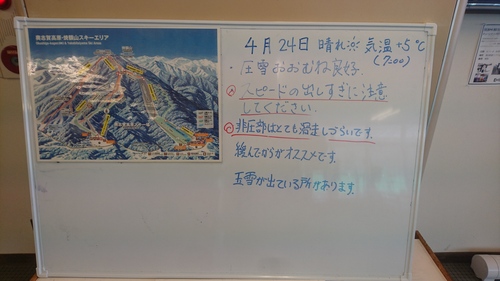 奥志賀高原・焼額山スキーエリア
4月24日 晴れ 気温+5℃
(7:00)
・圧雪おおむね良好.
スピードの出しすぎに注意
してください.
非圧部はとても滑走しづらいです。
緩んでからがオススメです。
玉雪が出ている所があります。